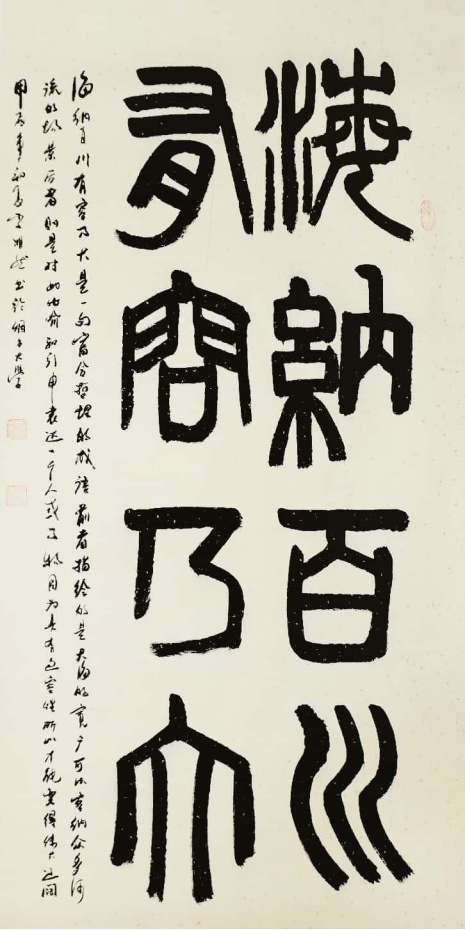 海納百川
有容乃大
海纳百川有容乃大是一句富含哲理的成语前者描绘的是大海的宽广可以容纳众多河
流的场景后者则是对此比喻和引申表达一个人或事物因为具有包容性所以才能变得伟大辽阔
甲辰年初夏 书于 大学